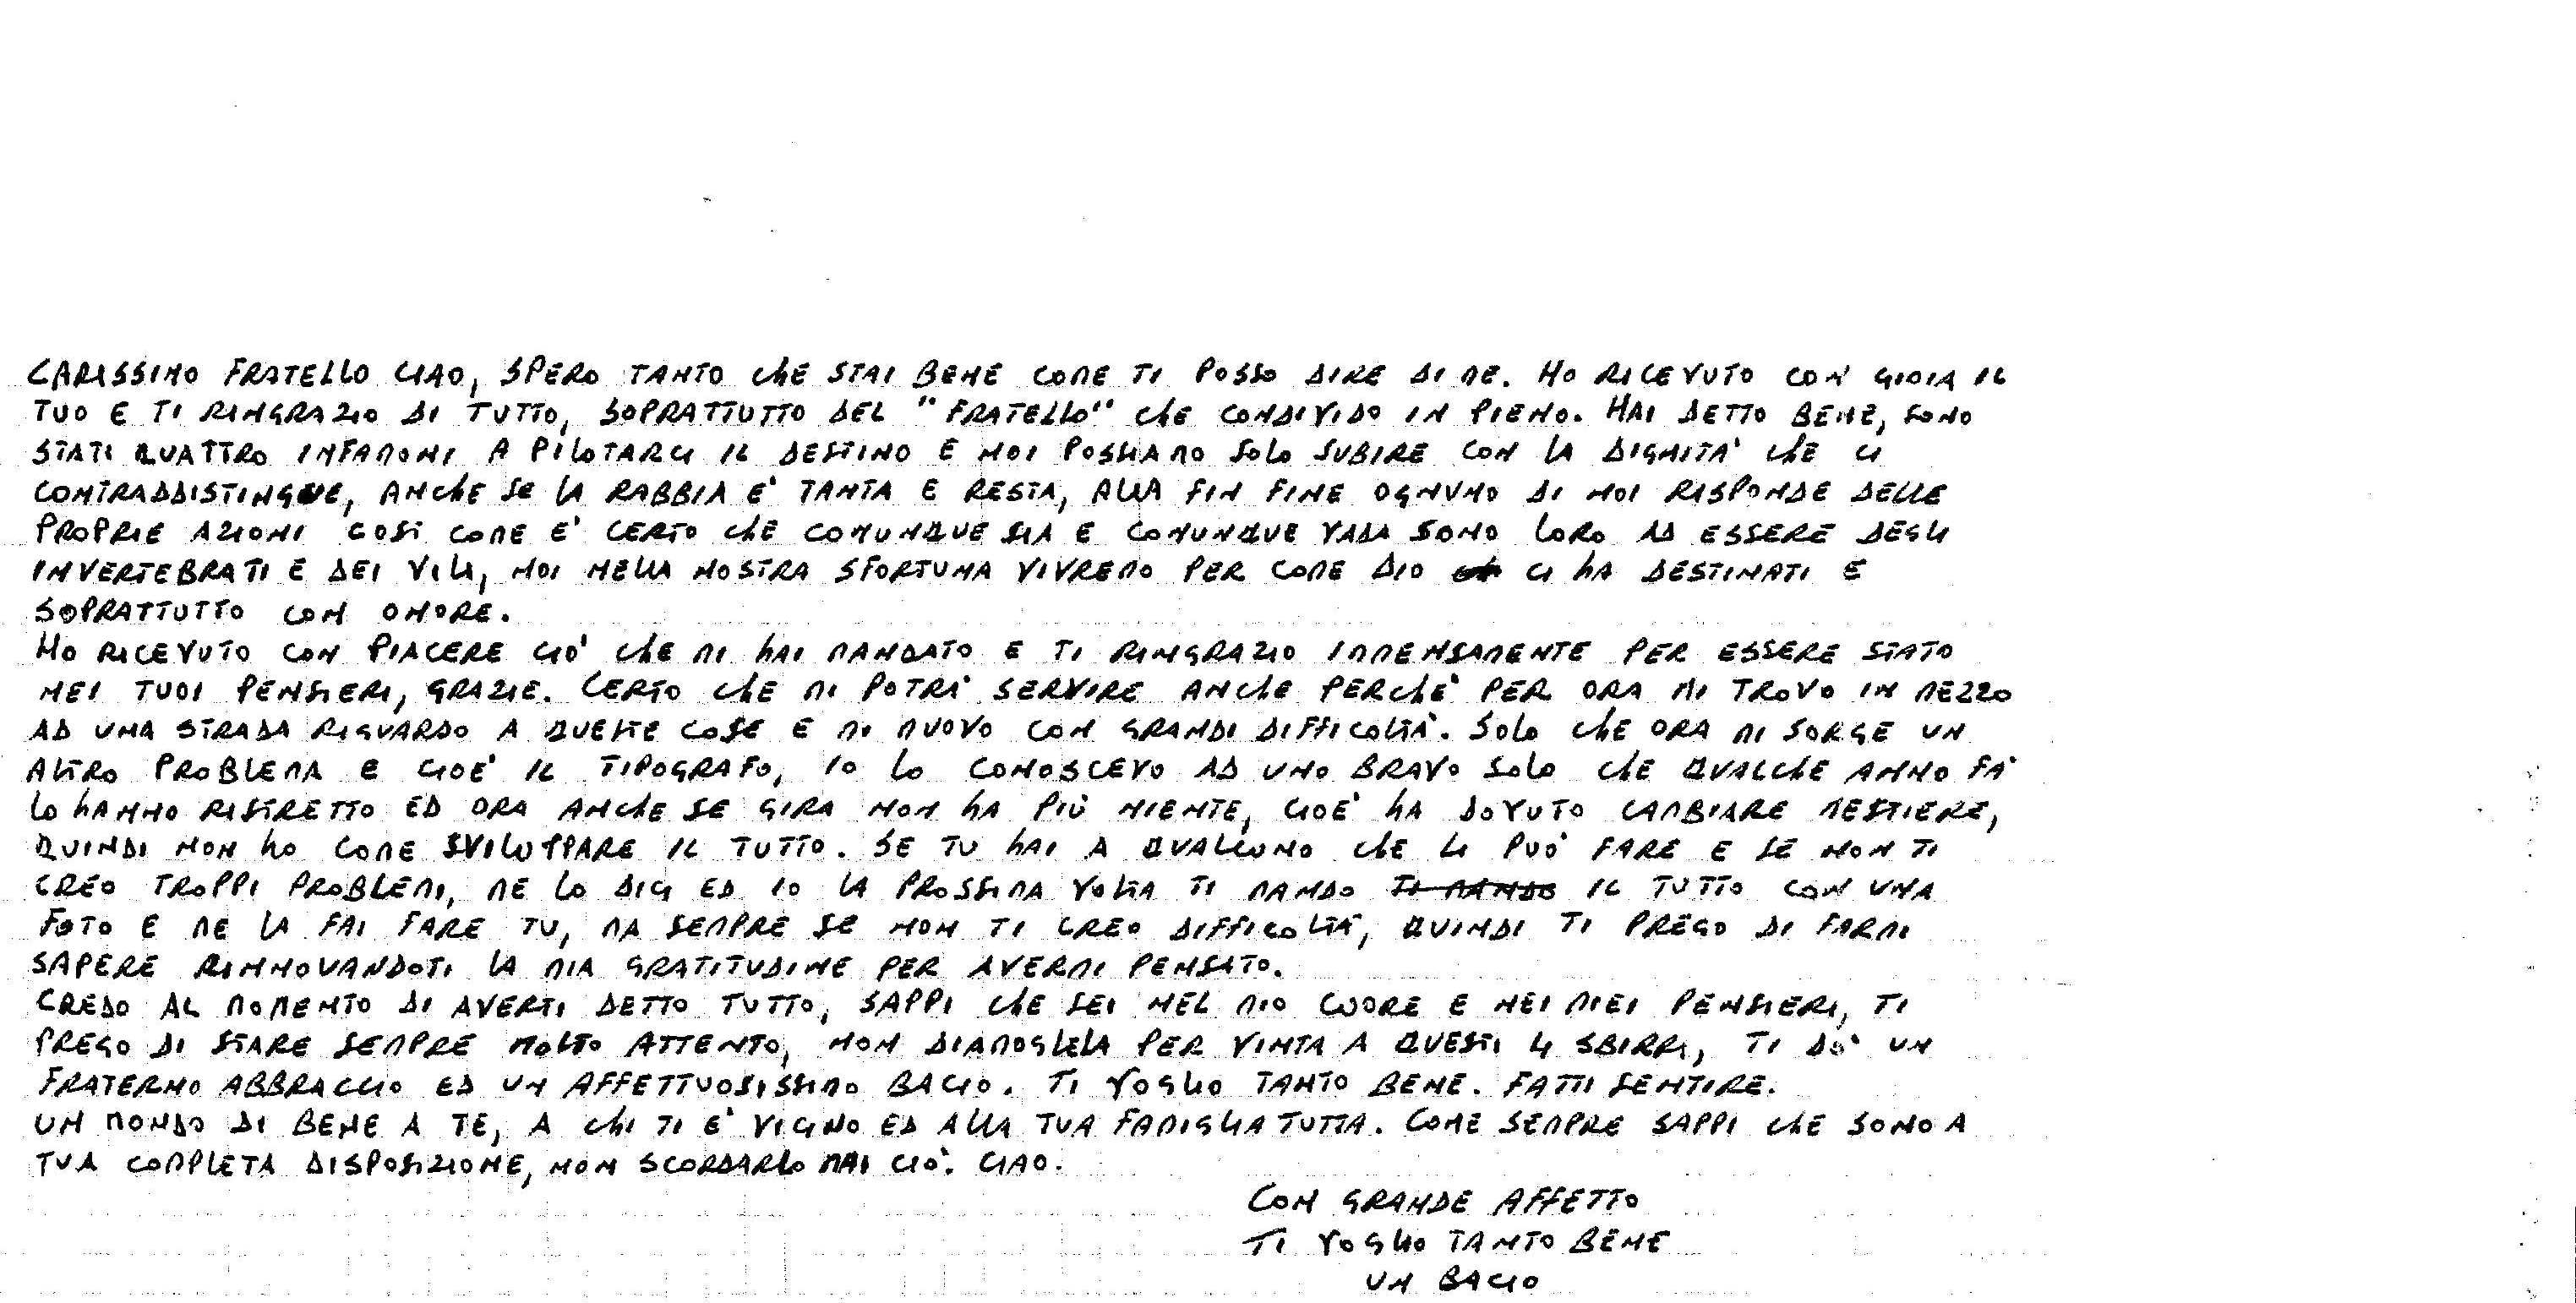 CARISSIMO FRATELLO CIAO, SPERO TANTO CHE STAI BENE COME TI POSSO DIRE DI ME. HO RICEVUTO CON GIOIA IL
TUO E TI RINGRAZIO DI TUTTO, SOPRATTUTTO DEL "FRATELLO" CHE CONDIVIDO IN PIENO. HAI DETTO BENE, SONO
STATI QUATTRO INFAMONI A PILOTARCI IL DESTINO E NOI POSSIAMO SOLO SUBIRE CON LA DIGNITA' CHE CI
CONTRADDISTINGUE, ANCHE SE LA RABBIA E' TANTA E RESTA, ALLA FIN FINE OGNUNO DI NOI RISPONDE DELLE
PROPRIE AZIONI COSI COME E' CERTO CHE COMUNQUE SIA E COMUNQUE VADA SONO LORO AD ESSERE DEGLI
INVERTEBRATI E DEI VILI, NOI NELLA NOSTRA SFORTUNA VIVREMO PER COME DIO CI HA DESTINATI E
SOPRATTUTTO CON ONORE.
HO RICEVUTO CON PIACERE CIO' CHE MI HAI MANDATO E TI RINGRAZIO IMMENSAMENTE PER ESSERE STATO
NEI TUOI PENSIERI, GRAZIE. CERTO CHE MI POTRA' SERVIRE ANCHE PERCHE' PER ORA MI TROVO IN MEZZO
AD UNA STRADA RIGUARDO A QUESTE COSE E MI MUOVO CON GRANDI DIFFICOLTA'. SOLO CHE ORA MI SORGE UN
ALTRO PROBLEMA E CIOE' IL TIPOGRAFO, IO LO CONOSCEVO AD UNO BRAVO SOLO CHE QUALCHE ANNO FA'
LO HANNO RISTRETTO ED ORA ANCHE SE GIRA NON HA PIÙ NIENTE, CIOE' HA DOVUTO CAMBIARE MESTIERE,
QUINDI NON HO COME SVILUPPARE IL TUTTO. SE TU HAI A QUALCUNO CHE LI PUO' FARE E SE NON TI
CREO TROPPI PROBLEMI, ME LO DICI ED IO LA PROSSIMA VOLTA TI MANDO TI MANDO IL TUTTO CON UNA
FOTO E ME LA FAI FARE TU, MA SEMPRE SE NON TI CREO DIFFICOLTA', QUINDI TI PREGO DI FARMI
SAPERE RINNOVANDOTI LA MIA GRATITUDINE PER AVERMI PENSATO.
CREDO AL MOMENTO DI AVERTI DETTO TUTTO, SAPPI CHE SEI NEL MIO CUORE E NEI MIEI PENSIERI, TI
PREGO DI STARE SEMPRE MOLTO ATTENTO, NON DIAMOGLIELA PER VINTA A QUESTI 4 SBIRRI, TI DO' UN
FRATERNO ABBRACCIO ED UN AFFETTUOSISSIMO BACIO. TI VOGLIO TANTO BENE. FATTI SENTIRE.
UN MONDO DI BENE A TE, A CHI TI E' VICINO ED ALLA TUA FAMIGLIA TUTTA. COME SEMPRE SAPPI CHE SONO A
TUA COMPLETA DISPOSIZIONE, NON SCORDARLO MAI CIO'. CIAO.
CON GRANDE AFFETTO
TI VOGLIO TANTO BENE
UN BACIO